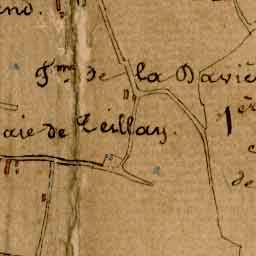 end.
F.me de la Daviè
1.èr
aie de Leillay.
e
de